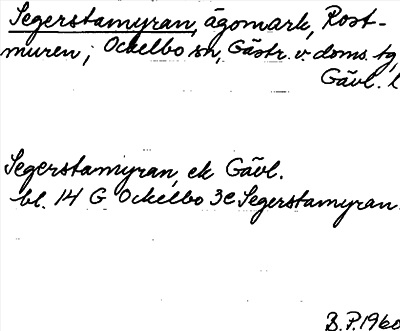 Segerstamyran, ägomark, Rost-
muren; Ockelbo sn, Gästr. v. doms. tg,
Gävl. l
Segerstamyran, ek Gävl.
bl. 14 G Ockelbo 3e Segerstamyran.
B.P. 1960